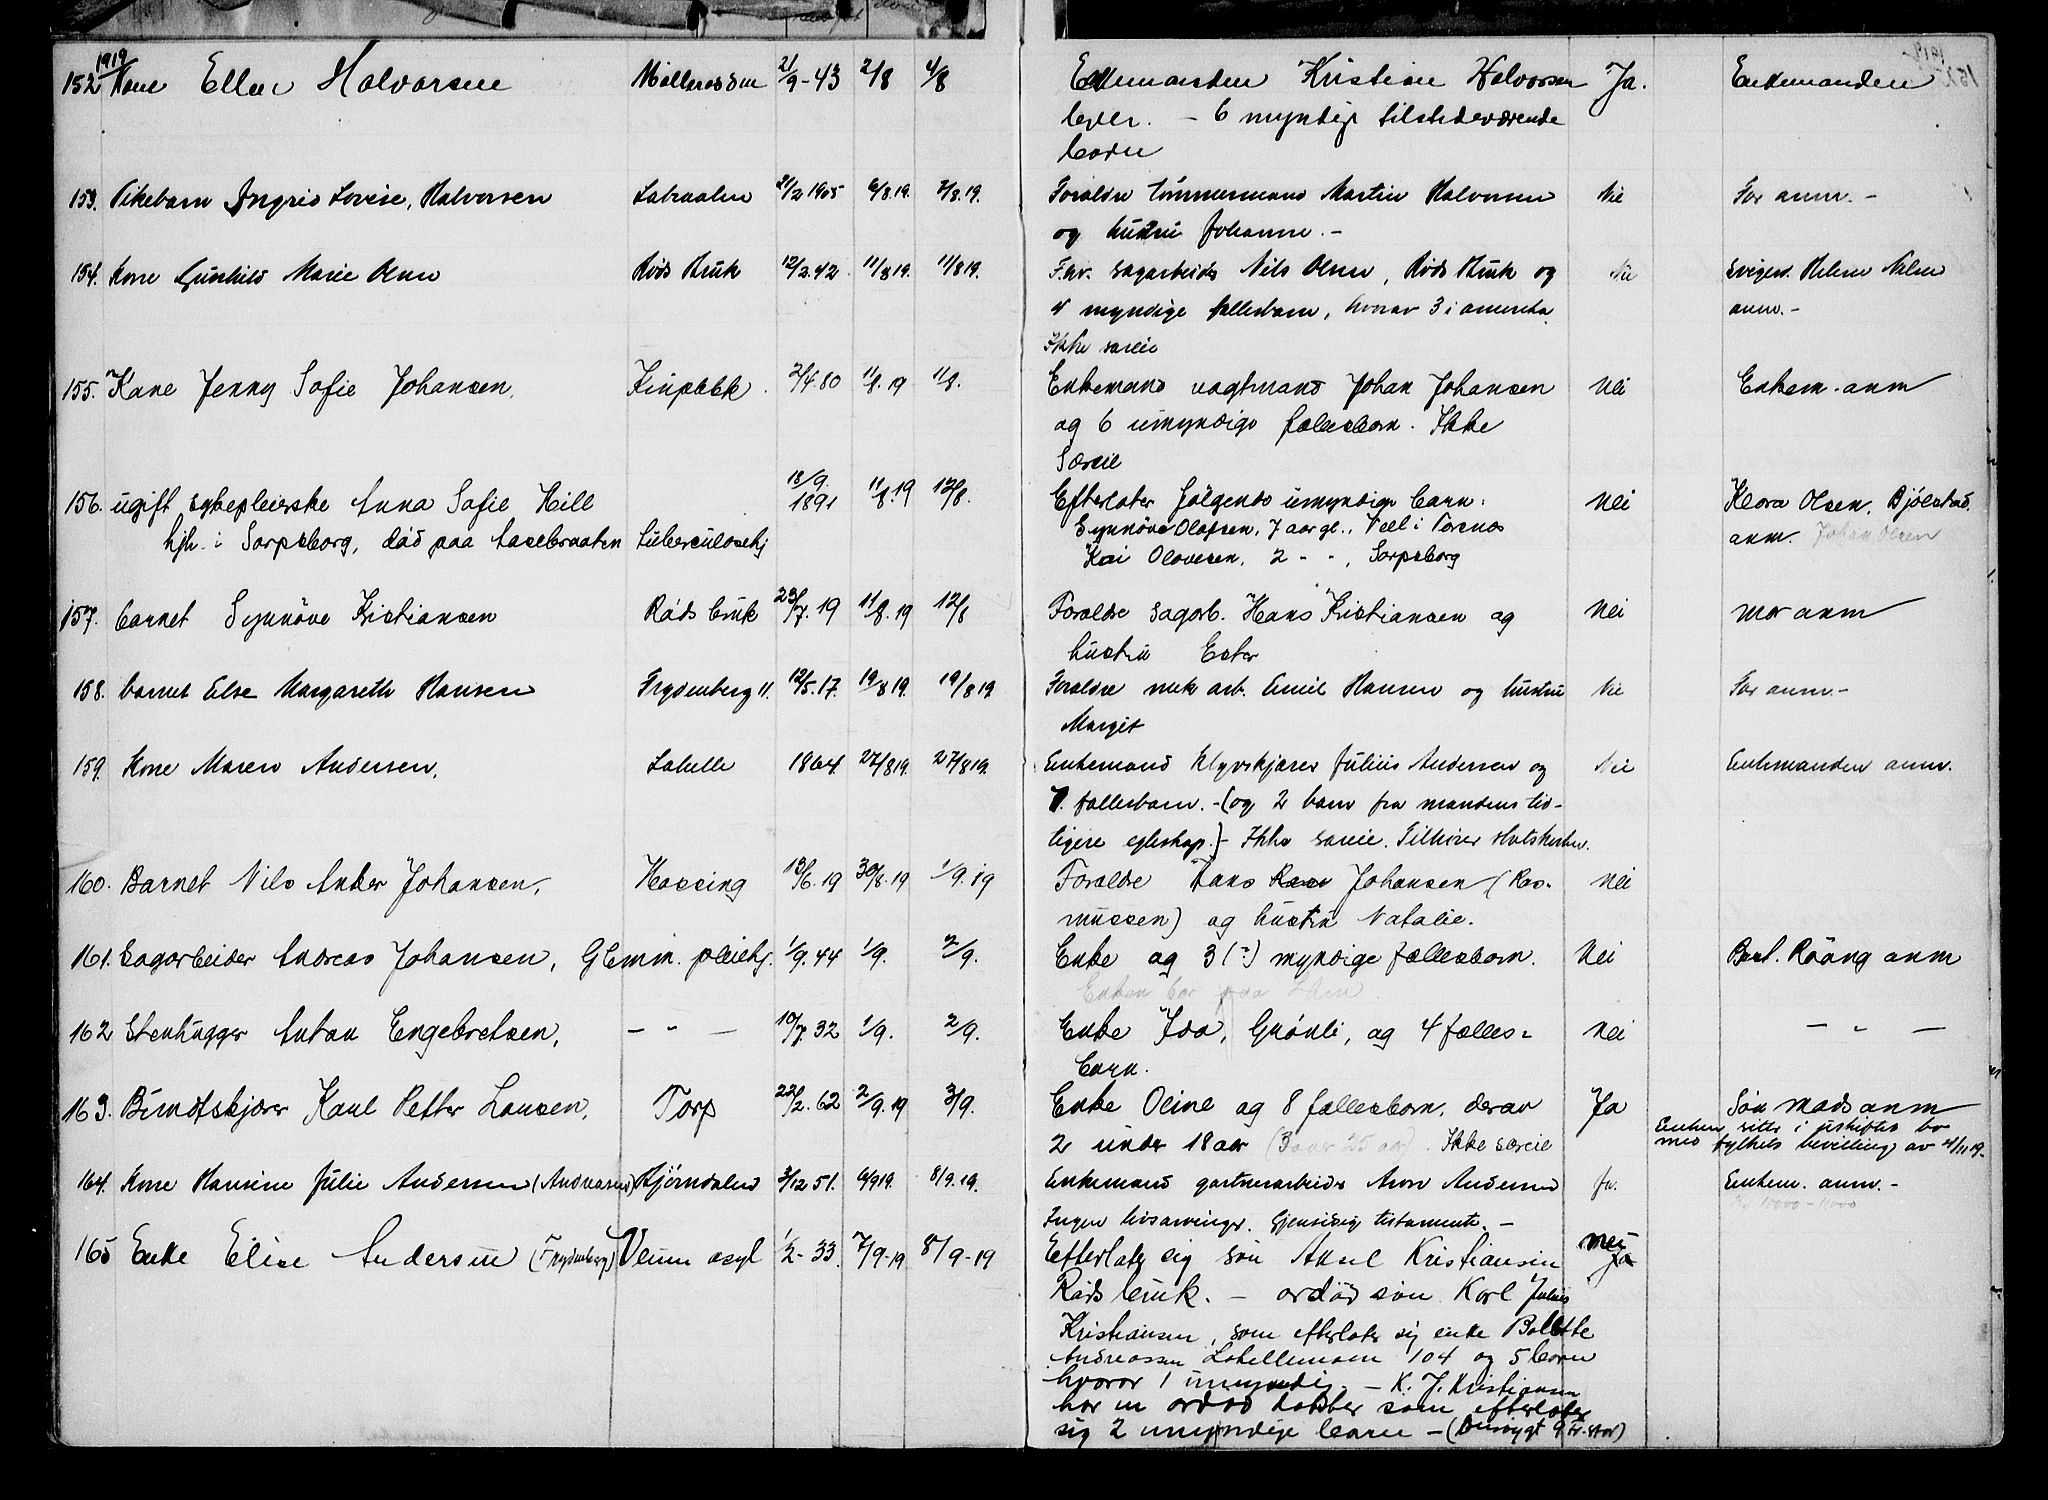 1919
152 Kone Ellen Halvorsen 21/9-43 2/8 4/8 Enkemanden Kristian Halvorsen Ja. Enkemanden
lever. - 6 myndige tilstedeværende
børn
153. Pikebarn Ingrid Lovise, Halvorsen Labraaten 21/2 1905 6/8.19. 7/8.19. Foraldre tømmermand Martin Halvorsen Nei Far anm. -
og hustru Johanne. -
154. Kone Gunhild Marie Olsen Røds Bruk 12/2.42 11/8 19. 11/8 19. F.hv. sagarbeider Nils Olsen, Røds Bruk og Nei svigerd. Helene Nilsen
4 myndige fællesbarn, hvorav 3 i amerika anm. -
Ikke særeie
155. Kone Jenny Sofie Johansen. 2/4.80 11/8.19 11/8. Enkemand vagtmand Johan Johansen Nei Enkem. anm
og 6 umyndige fællesbørn. Ikke
Særeie
156. ugift sykepleierske Anna Sofie Hill 18/9. 1891 11/8.19 12/8. Efterlater følgende umyndige barn: Nei Klara Olsen, Bjølstad.
hjh. i Sarpsborg, død paa Haseraaten Tuberculosehj Synnøve Olafsen, 7 aar gl., Vell i Torsnes anm. Johan Olsen
Kai Olavesen, 2 - " - , Sarpsborg
157. barnet Synnöve Kristiansen Røds bruk 23/7.19 11/8.19 12/8 Foraldre sagarb. Hans Kristiansen og Nei mor anm
hustru Ester
158. barnet Else Margareth Hansen Frydenberg 11. 12/5.17. 19/8 19. 19/8 19 Foraldre mek. arb. Emil Hansen og hustru Nei Far anm. -
Margit
159. Kone Maren Andersen. Labelle 1864. 27/8 19. 27/8 19. Enkemand Klyvskjærer Julius Andersen og Nei Enkemanden anm.
7. fællesbarn. - (og 2 barn fra mandens tid-
ligere egteskap.) - Ikke særeie.
160. Barnet Nils Ander Johansen, Hassing 13/6.19 30/8.19 1/9.19 Foraldre Hans Johansen (Ras- Nei
mussen) og hustru Natalie.
161. Sagarbeider Andreas Johansen, Glemm. pleiehj. 1/9.44 1/9. 2/9. Enke og 3 (?) myndige fællesbørn. Nei Best. Röäng anm
Enken bor paa
162 Stenhugger Anton Engebretsen, - " - 10/7.32 1/9. 2/9. Enke Ida, Grønli, og 4 fælles- Nei - " -
barn.
163. Bundtskjærer Karl Petter Lansen, Torp 22/2.62 2/9.19 3/9. Enke Oline og 8 fællesbørn, derav Ja Søn Mads anm
2 under 18 aar (3 over 25 aar). Ikke særeie Enken sitter i uskiftet bo
med fylkets bevilling av 4/11 19.
164. Kone Hansine Julie Andersen (Andreasen) Bjørndalen 3/12 51. 6/9 19. 8/9.19. Enkemand gartnerarbeider Aron Andersen Ja. Enkem. anm. -
Ingen livsarvinger. Gjensidig testamente. - 10000 - 11000
165 Enke Elise Andersen (Frydenberg) Veum asyl 1/2-33 7/9-19 8/9-19 Efterlater sig søn Aksel Kristiansen nei Ja
Røds bruk. - avdød søn Karl Julius
Kristiansen, som efterlater sig enke Bolette
Andreassen Labellemoen 104 og 5 børn
hvorav 1 umyndig. - K. J. Kristiansen
har en avdød datter som efterlater
sig 2 umyndige barn -